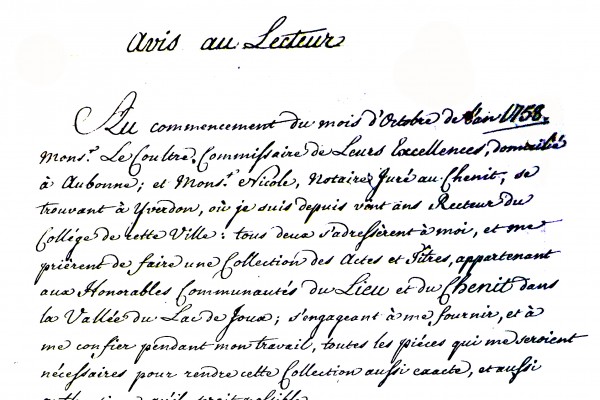 Avis au Lecteur
Au commencement du mois d'Octobre de l'an 1758.
Mons.r Le Coultre, Commissaire de Leurs Excellences, domicilié
à Aubonne; et Mons.r Nicole, Notaire Juré au Chenit, se
trouvant à Yverdon, où je suis depuis vint ans Recteur du
Collége de cette Ville: tous deux s'adressèrent à moi, et me
prièrent de faire une Collection des Actes et Titres, appartenant
aux Honorables Communautés du Lieu et du Chenit dans
la Vallée du Lac de Joux; s'engageant à me fournir, et à
me confier pendant mon travail, toutes les piéces qui me seroient
nécessaires pour rendre cette Collection aussi exacte, et aussi